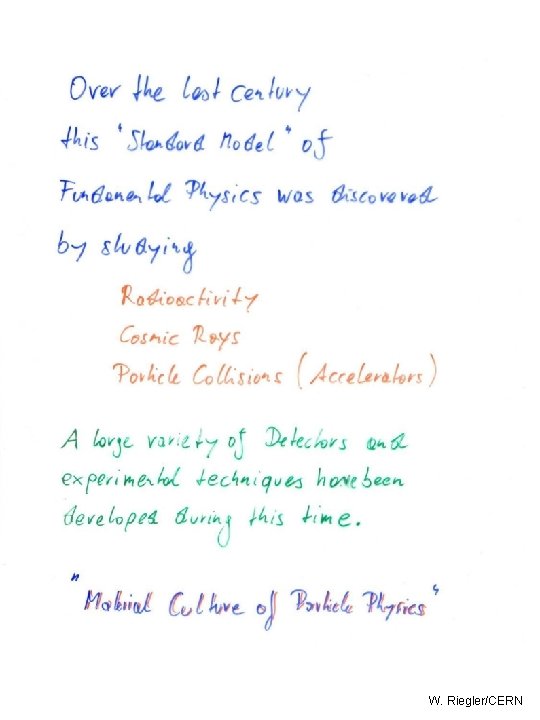 Over the last century
this "Standard Model" of
Fundamental Physics was discovered
by studying
Radioactivity
Cosmic Rays
Particle Collisions (Accelerators)
A large variety of Detectors and
experimental techniques have been
developed during this time.
"Material Culture of Particle Physics"
W. Riegler/CERN